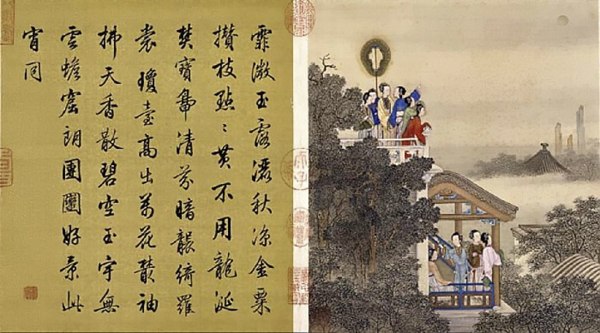 霏微玉露濕秋涼金粟
攢枝點〻黃不用龍涎
焚寶鴨清芬暗襲綺羅
裳瓊臺高出萬花叢袖
拂天香散碧空玉宇無
雲蟾窟朗團團好景此
宵同